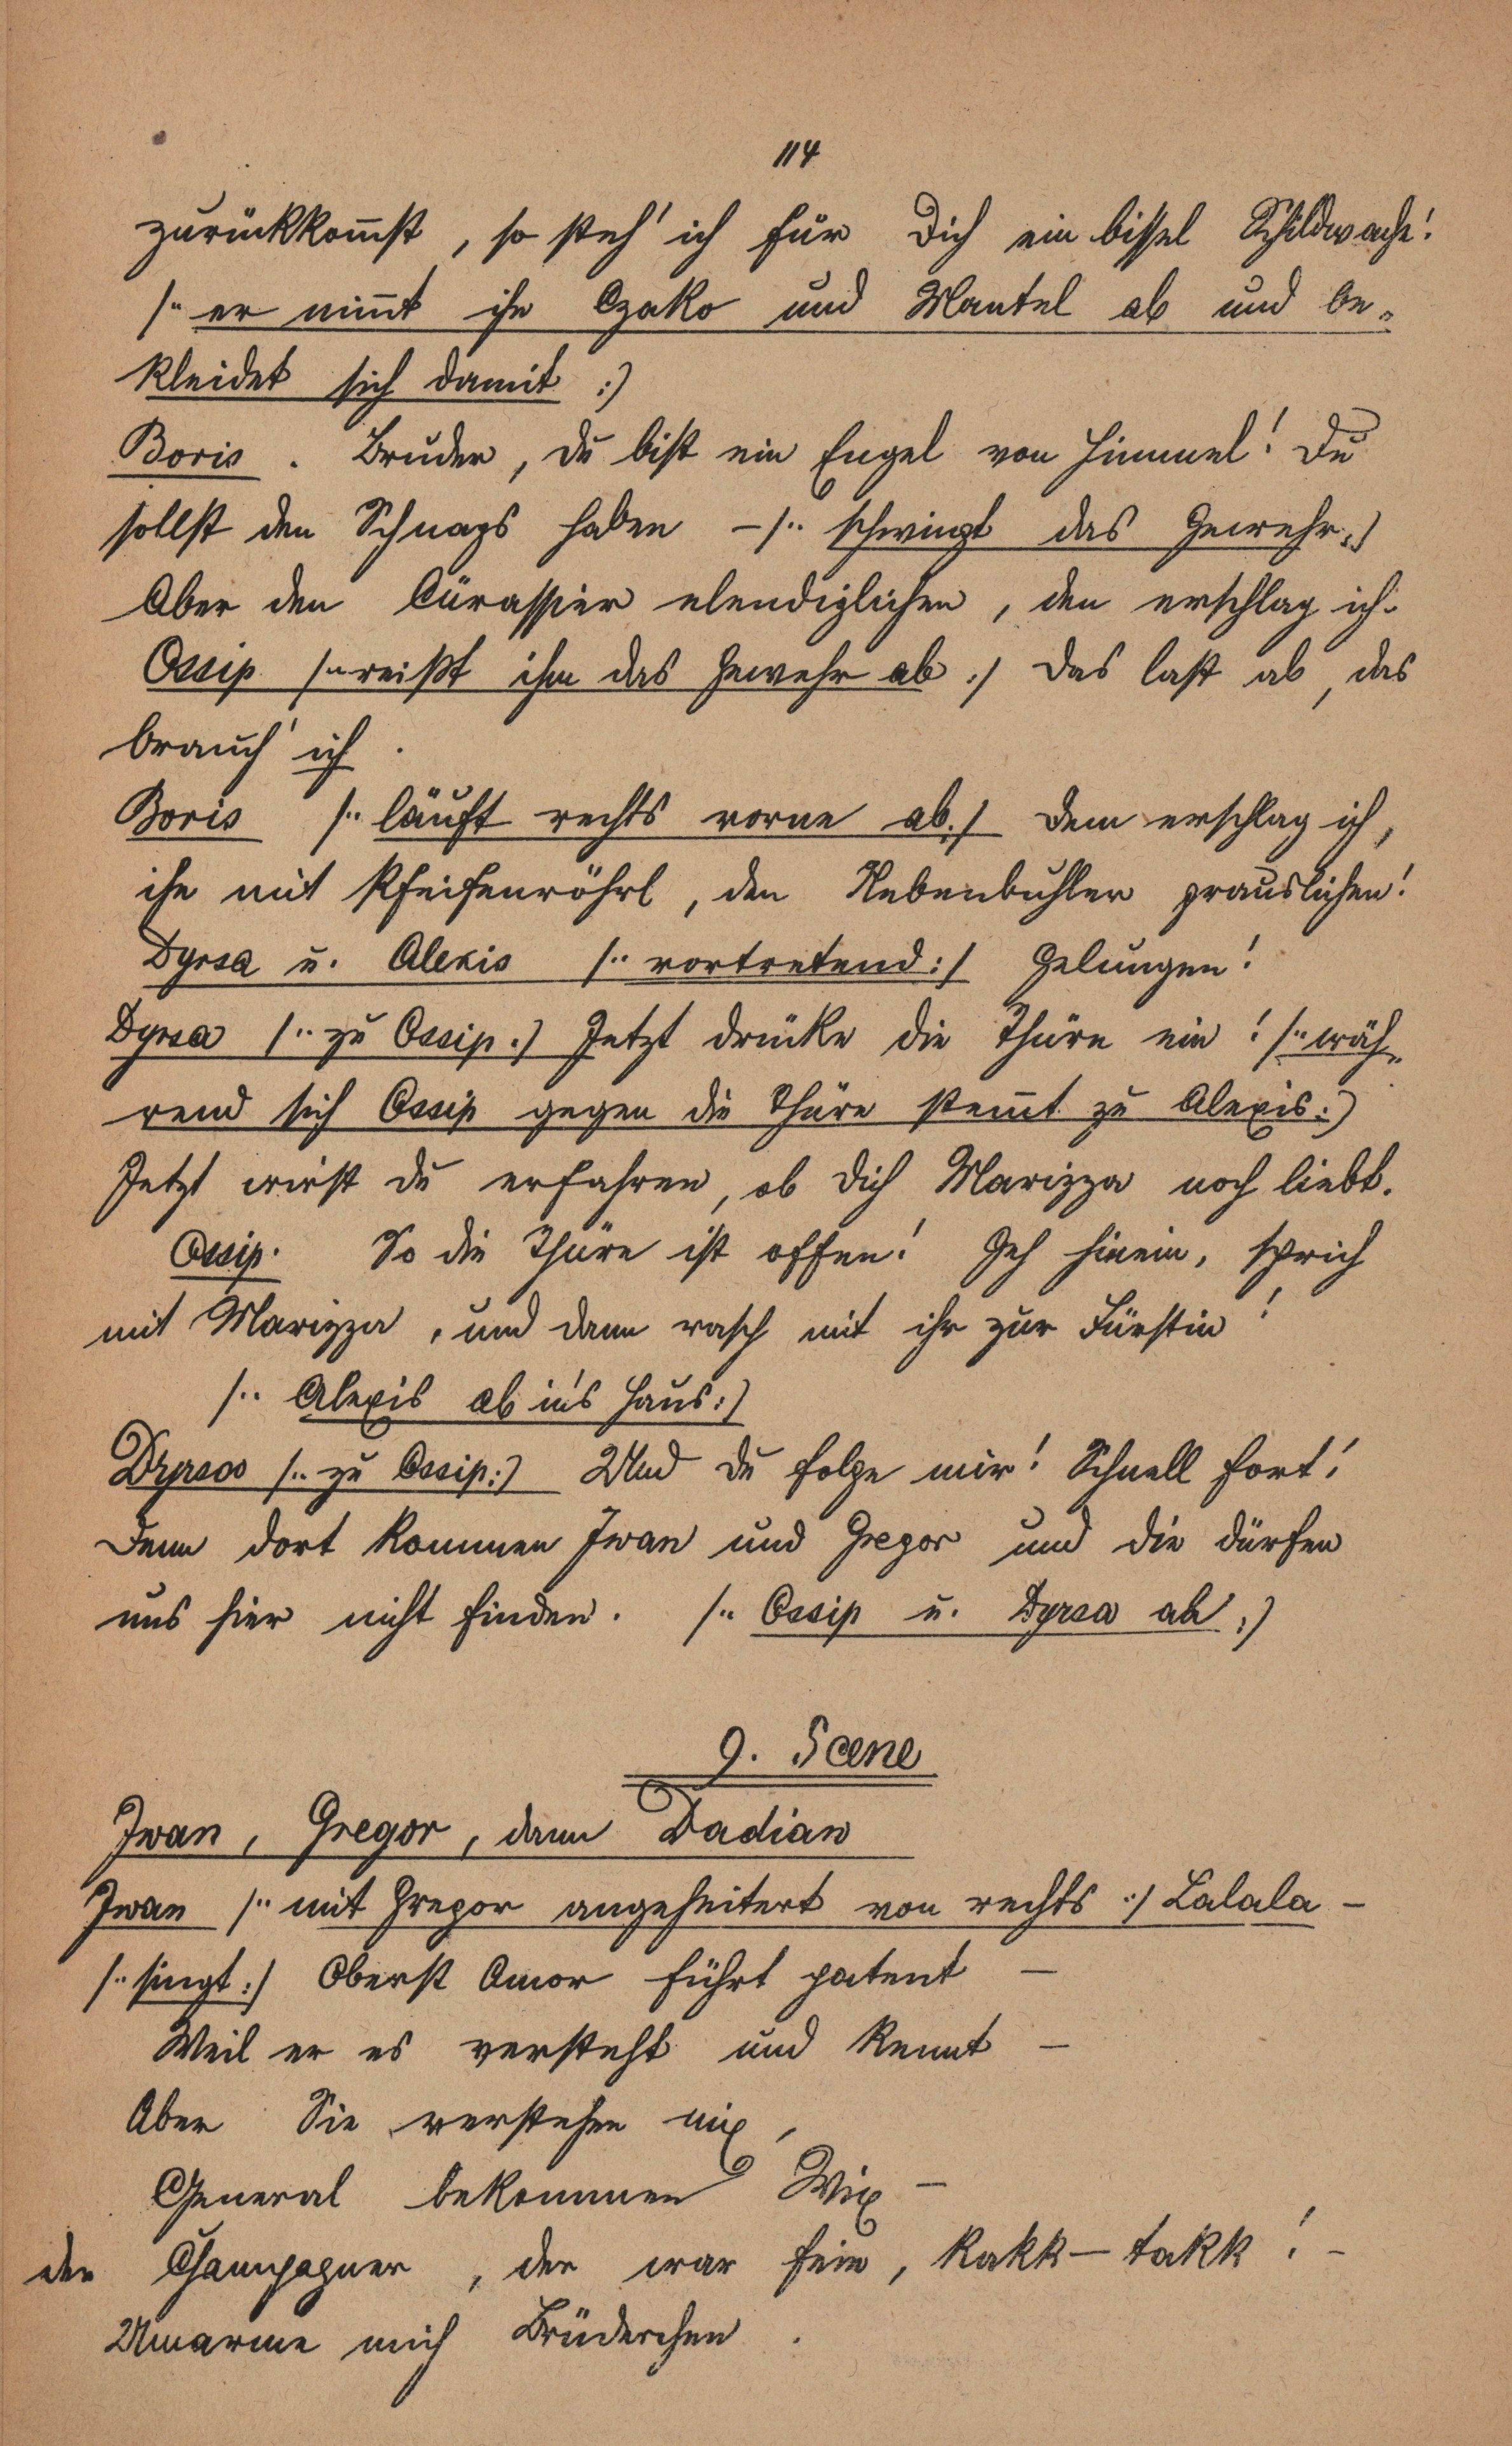 114
zurückkom̄st, so steh' ich für Dich ein bissel Schildwache!
/: er nim̄t ihn Czako und Mantel ab und be-
kleidet sich damit :/
Boris. Bruder, du bist ein Engel von Himmel! Du
sollst den Schnaps haben – /: schwingt das Gewehr :/
Aber den Cürassier elendiglichen, den erschlag ich.
Ossip /: reißt ihm das Gewehr ab :/ Das last ab, das
brauch' ich.
Boris /: läuft rechts vorne ab :/ Dem erschlag ich,
ihn mit Pfeifenröhrl, den Nebenbuhler grauslichen!
Dyrsa u. Alexis /: vortretend :/ Gelungen!
Dyrsa /: zu Ossip :/ Jetzt drücke die Thüre ein! /: wäh-
rend sich Ossip gegen die Thüre stem̄t zu Alexis :/
Jetzt wirst du erfahren, ob Dich Marizza noch liebt.
Ossip. So die Thüre ist offen! Geh hinein, sprich
mit Marizza, und dann rasch mit ihr zur Fürstin!
/: Alexis ab in's Haus :/
Dyrsa /: zu Ossip :/ Und du folge mir! Schnell fort!
Denn dort kommen Iwan und Gregor und die dürfen
uns hier nicht finden. /: Ossip u. Dyrsa ab :/
9. Scene
Iwan, Gregor, dann Dadian
Iwan /: mit Gregor angeheitert von rechts :/ Lalala –
/: singt :/ Oberst Amor führt patent –
Weil er es versteht und kennt –
Aber Sie verstehen nix,
General bekommen Wix –
der Champagner, der war fein, kakk – takk! –
Umarme mich Brüderchen.